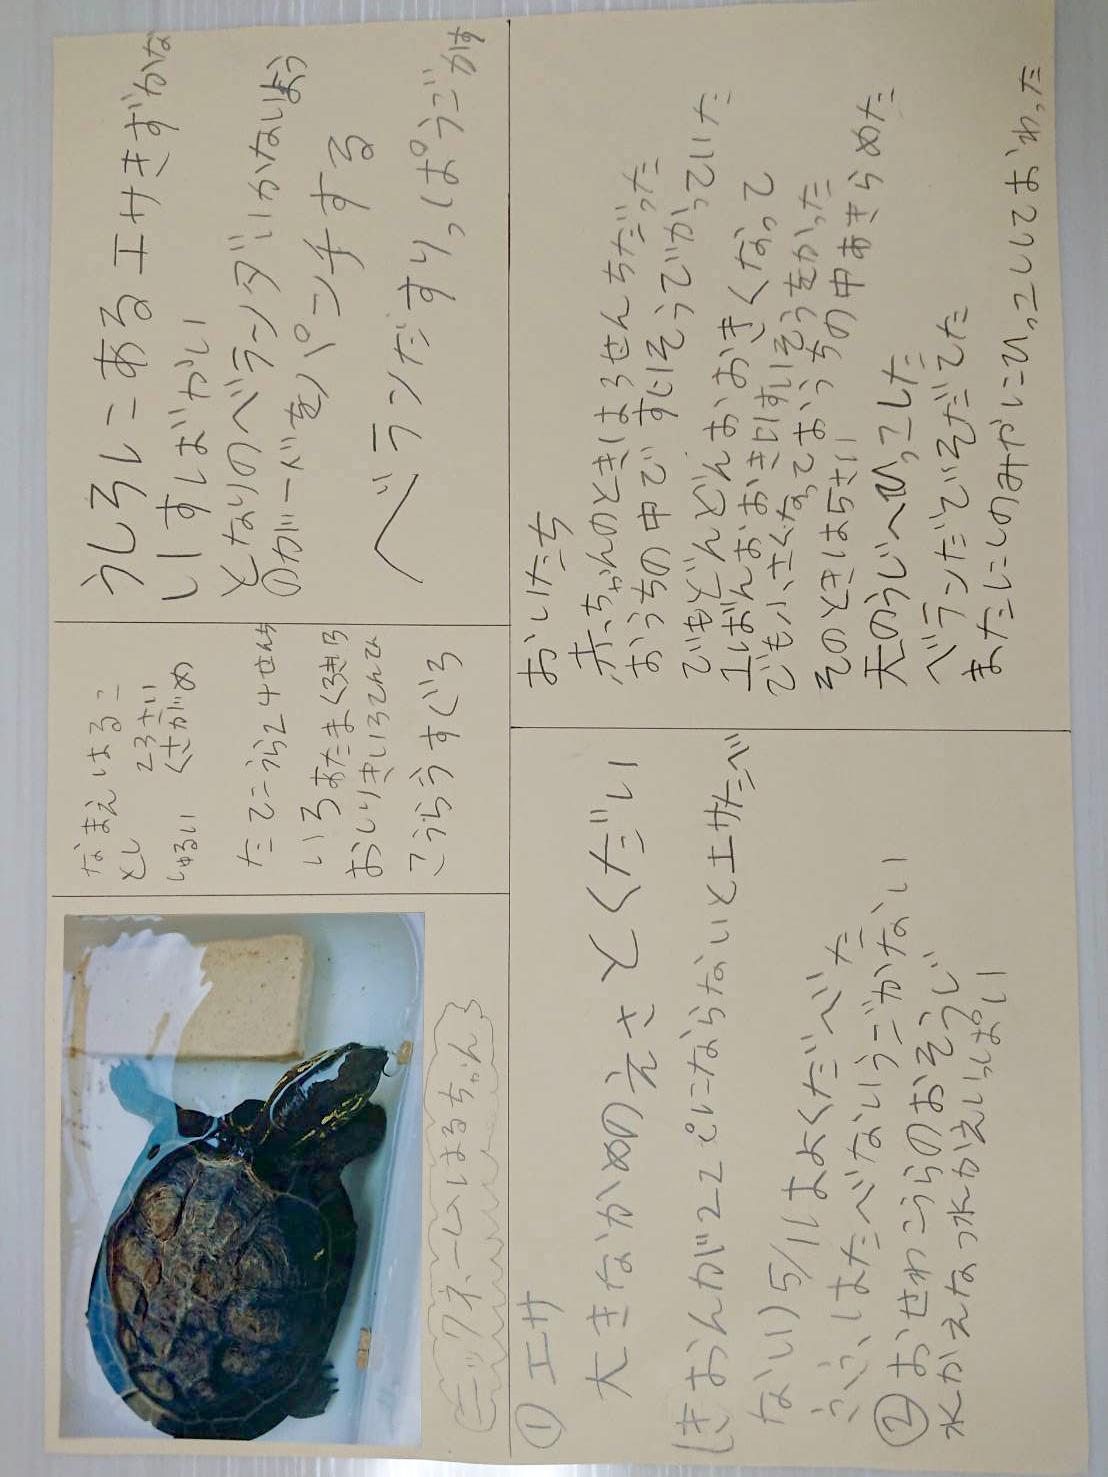 ニックネームはるちゃん
なまえ はるこ
とし 23さい
しゅるい くさがめ
たてこうら24せんち
いろあたまくろきいろ
おしりきいろてんてん
こうらうすぐろ
うしろにあるエサきずかな
いすしばかい
となりのベランダいかないよう
のがーべをパンチする
ベランだすりっぱうごかす
① エサ
大きなかめのえさとくだい
きおんが22どにならないとエサたべ
ない 5/1はよくたべた
ふうはたべないうごかない
② おせわこうらのおそうじ
水かえなつ水かえいっぱい
おいたち
赤っちゃんのときは3せんちだった
おうちの中ですいそうでかっていた
でもどんどんおおきくなって
1ばんおおきいすいそうをかった
でも小さくなっておうちの中あきらめた
そのときは5さい
天のうじへひっこした
ベランだでそだてた
またにしのみやにひっこしておわった